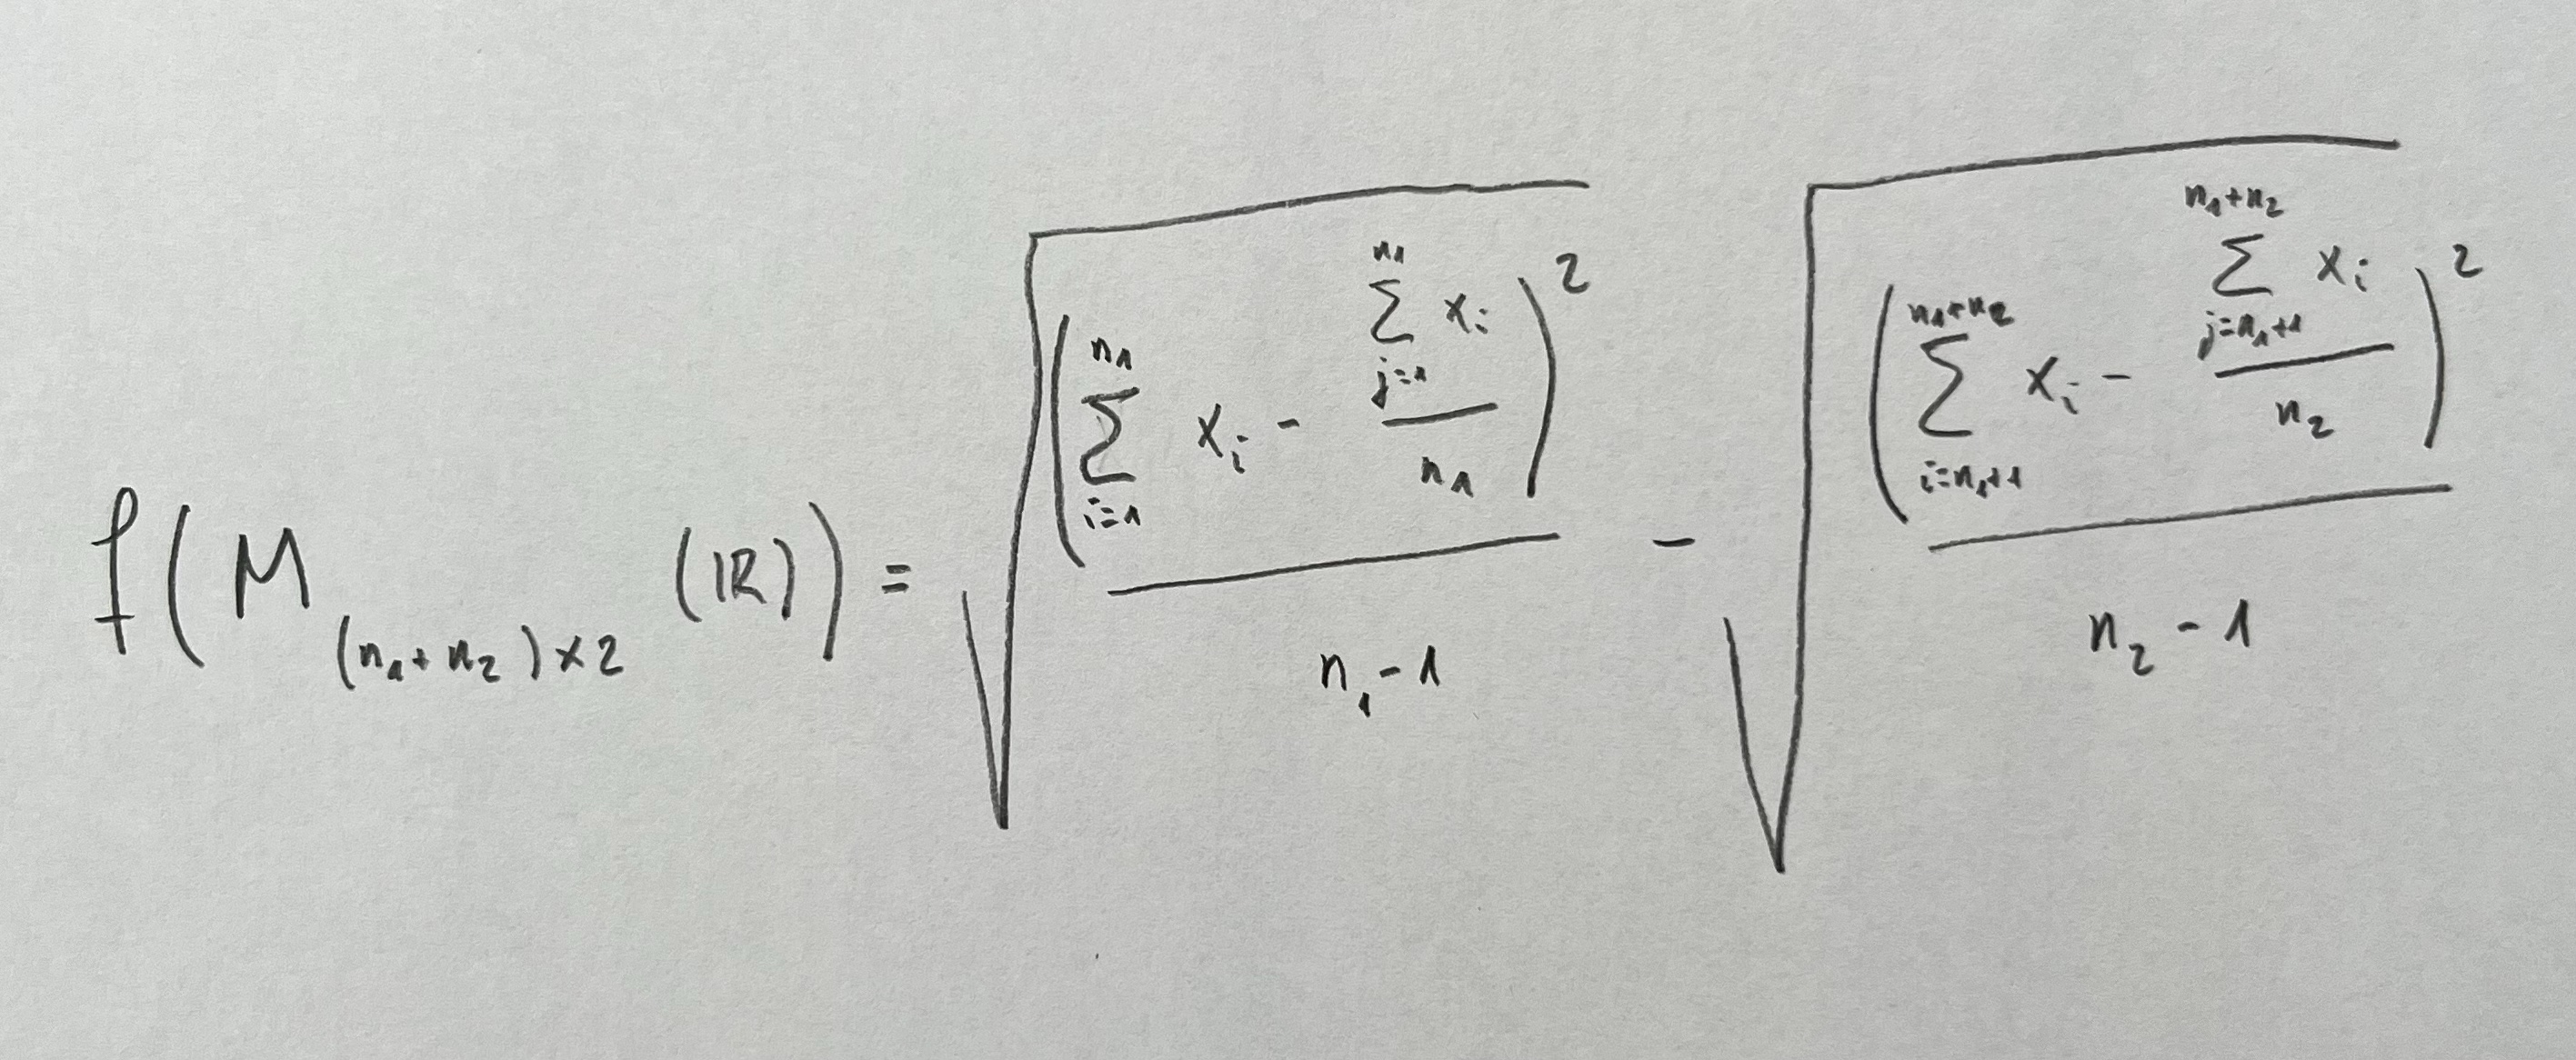 f(M_{(n_1+n_2)×2}(ℝ)) = \sqrt{\frac{\left(\sum_{i=1}^{n_1} x_i - \frac{\sum_{j=1}^{n_1} x_i}{n_1}\right)^2}{n_1-1}} - \sqrt{\frac{\left(\sum_{i=n_1+1}^{n_1+n_2} x_i - \frac{\sum_{j=n_1+1}^{n_1+n_2} x_i}{n_2}\right)^2}{n_2-1}}